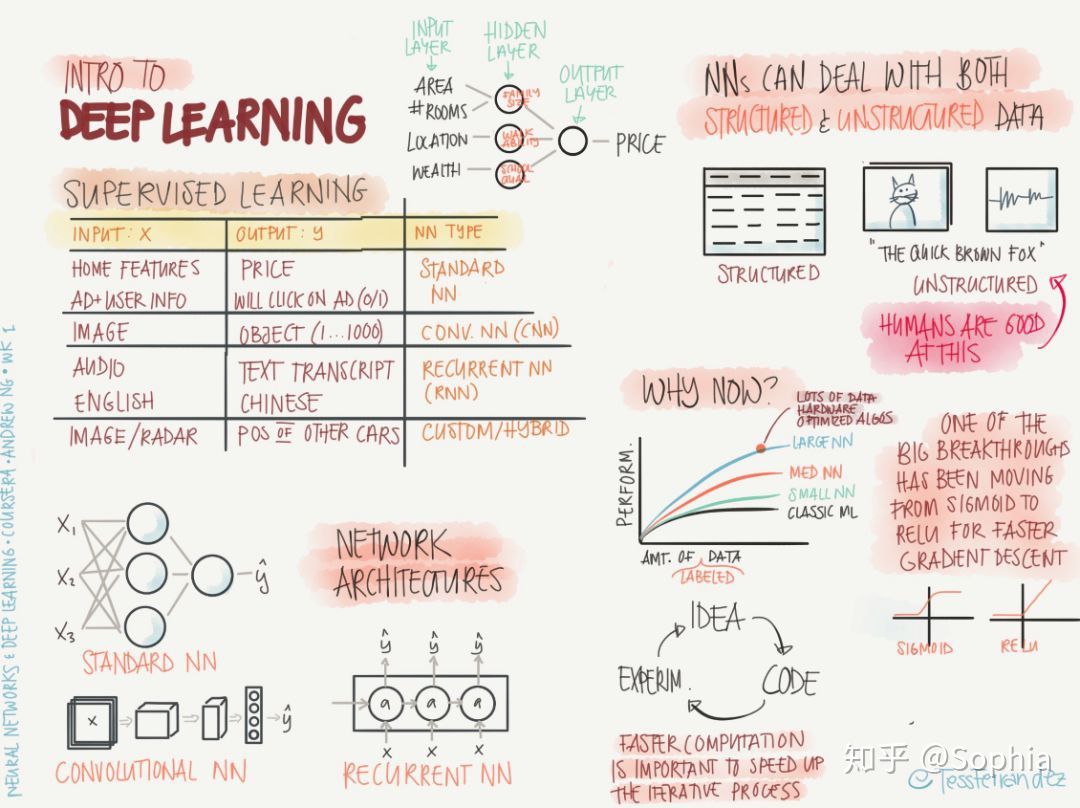 INTRO TO
DEEP LEARNING
INPUT LAYER
HIDDEN LAYER
OUTPUT LAYER
AREA
#ROOMS
LOCATION
WEALTH
FAMILY SIZE
WALK ABILITY
SCHOOL QUAL
PRICE
SUPERVISED LEARNING
INPUT: X OUTPUT: y NN TYPE
HOME FEATURES PRICE STANDARD
AD+USER INFO WILL CLICK ON AD (0/1) NN
IMAGE OBJECT (1...1000) CONV. NN (CNN)
AUDIO TEXT TRANSCRIPT RECURRENT NN
ENGLISH CHINESE (RNN)
IMAGE/RADAR POS OF OTHER CARS CUSTOM/HYBRID
NNs CAN DEAL WITH BOTH
STRUCTURED & UNSTRUCTURED DATA
STRUCTURED
"THE QUICK BROWN FOX"
UNSTRUCTURED
HUMANS ARE GOOD
AT THIS
WHY NOW?
LOTS OF DATA
HARDWARE
OPTIMIZED ALGOS
LARGE NN
MED NN
SMALL NN
CLASSIC ML
PERFORM.
AMT. OF DATA
LABELED
ONE OF THE
BIG BREAKTHROUGHS
HAS BEEN MOVING
FROM SIGMOID TO
RELU FOR FASTER
GRADIENT DESCENT
SIGMOID
RELU
X1
X2
X3
ŷ
STANDARD NN
NETWORK
ARCHITECTURES
X
ŷ
CONVOLUTIONAL NN
ŷ ŷ ŷ
a a a
X X X
RECURRENT NN
IDEA
CODE
EXPERIM.
FASTER COMPUTATION
IS IMPORTANT TO SPEED UP
THE ITERATIVE PROCESS
NEURAL NETWORKS & DEEP LEARNING • COURSERA • ANDREW NG • WK 1
知乎 @Sophia
@TessFerrandez